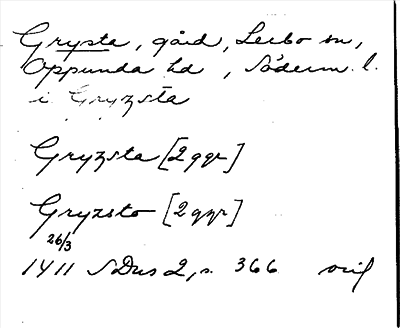 Grypsta, gård, Lerbo sn,
Oppunda hd, Söderm. l.
i Gryzsta
Gryzsta [2 ggr]
Gryzsto [2 ggr]
26/3
1411 SDns 2, s. 366 orig